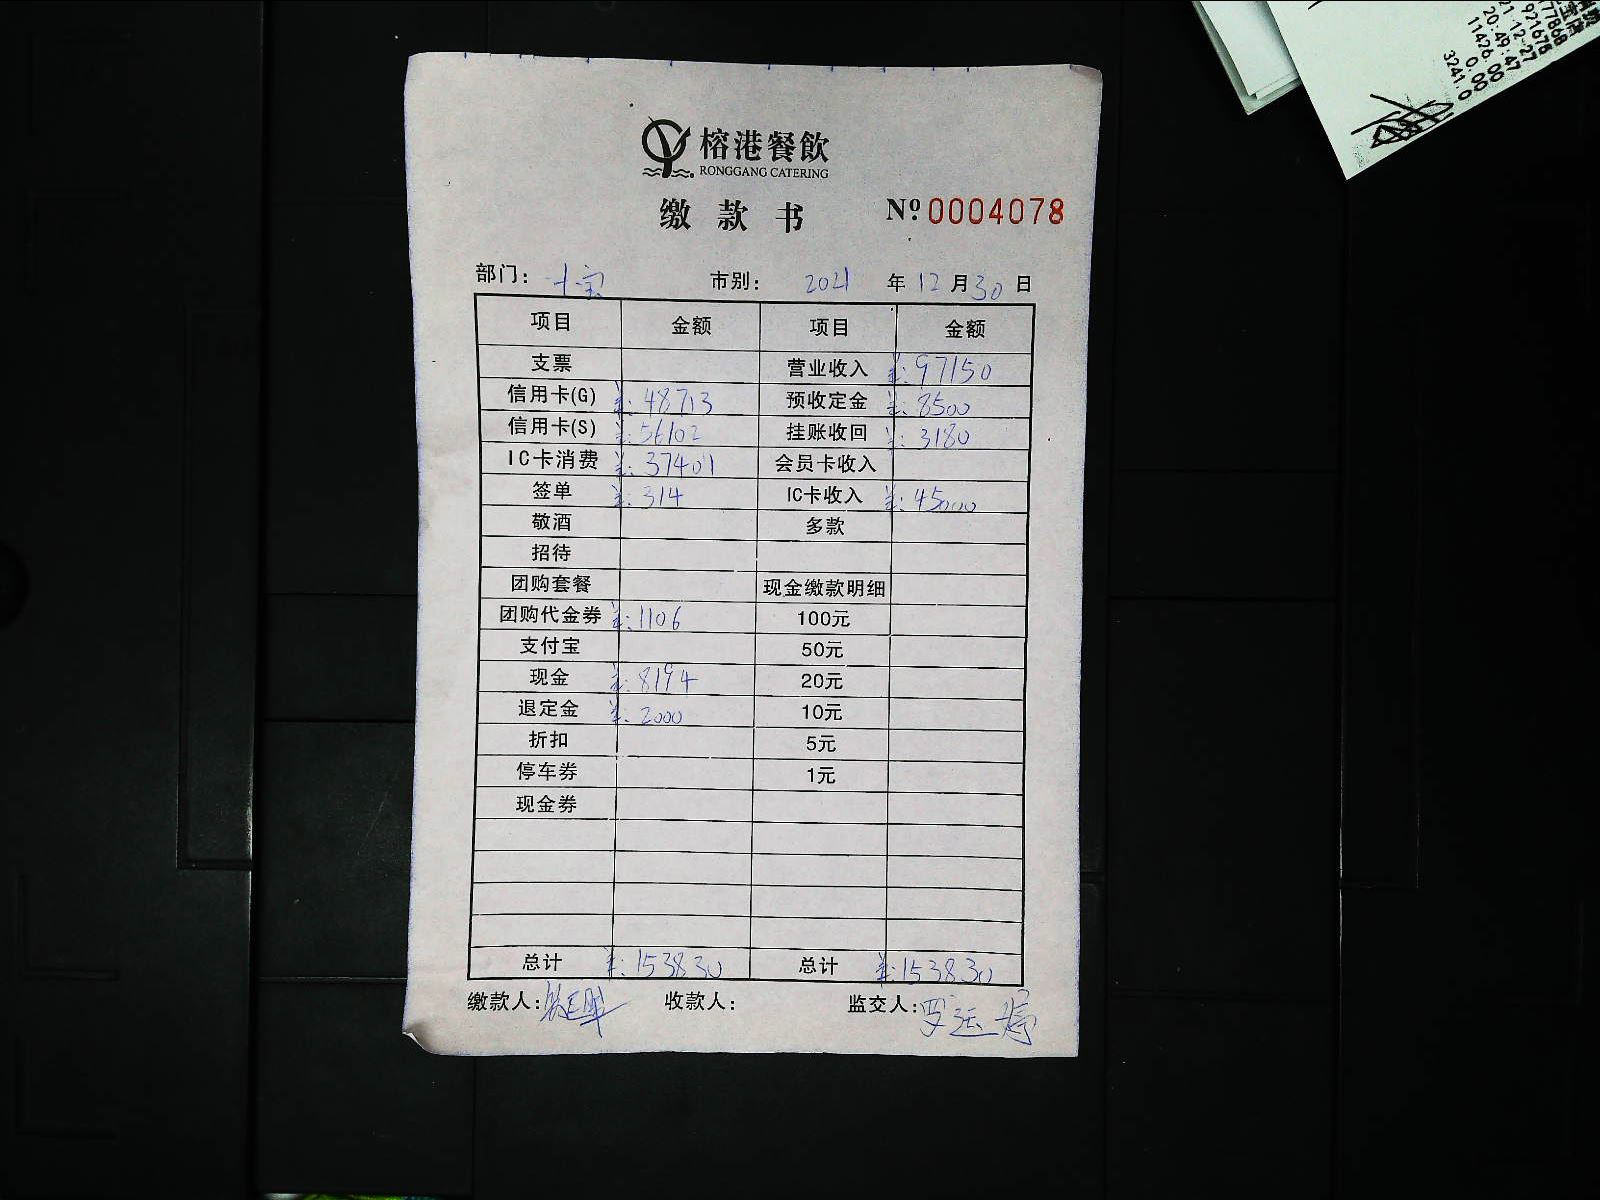 榕港餐飲
RONGGANG CATERING
缴款书 Nº 0004078
部门: 十宝 市别: 2021 年 12 月 30 日
项目 金额 项目 金额
支票 营业收入 ¥:97150
信用卡(G) ¥:48713 预收定金 ¥:8500
信用卡(S) ¥:56102 挂账收回 ¥:3180
IC卡消费 ¥:37401 会员卡收入
签单 ¥:314 IC卡收入 ¥:45000
敬酒 多款
招待
团购套餐 现金缴款明细
团购代金券 ¥:1106 100元
支付宝 50元
现金 ¥:8194 20元
退定金 ¥:2000 10元
折扣 5元
停车券 1元
现金券
总计 ¥:153830 总计 ¥:153830
缴款人: 收款人: 监交人:罗运婷
77868
921678
21-12-27
20:49:47
11426.00
0.00
3241.0